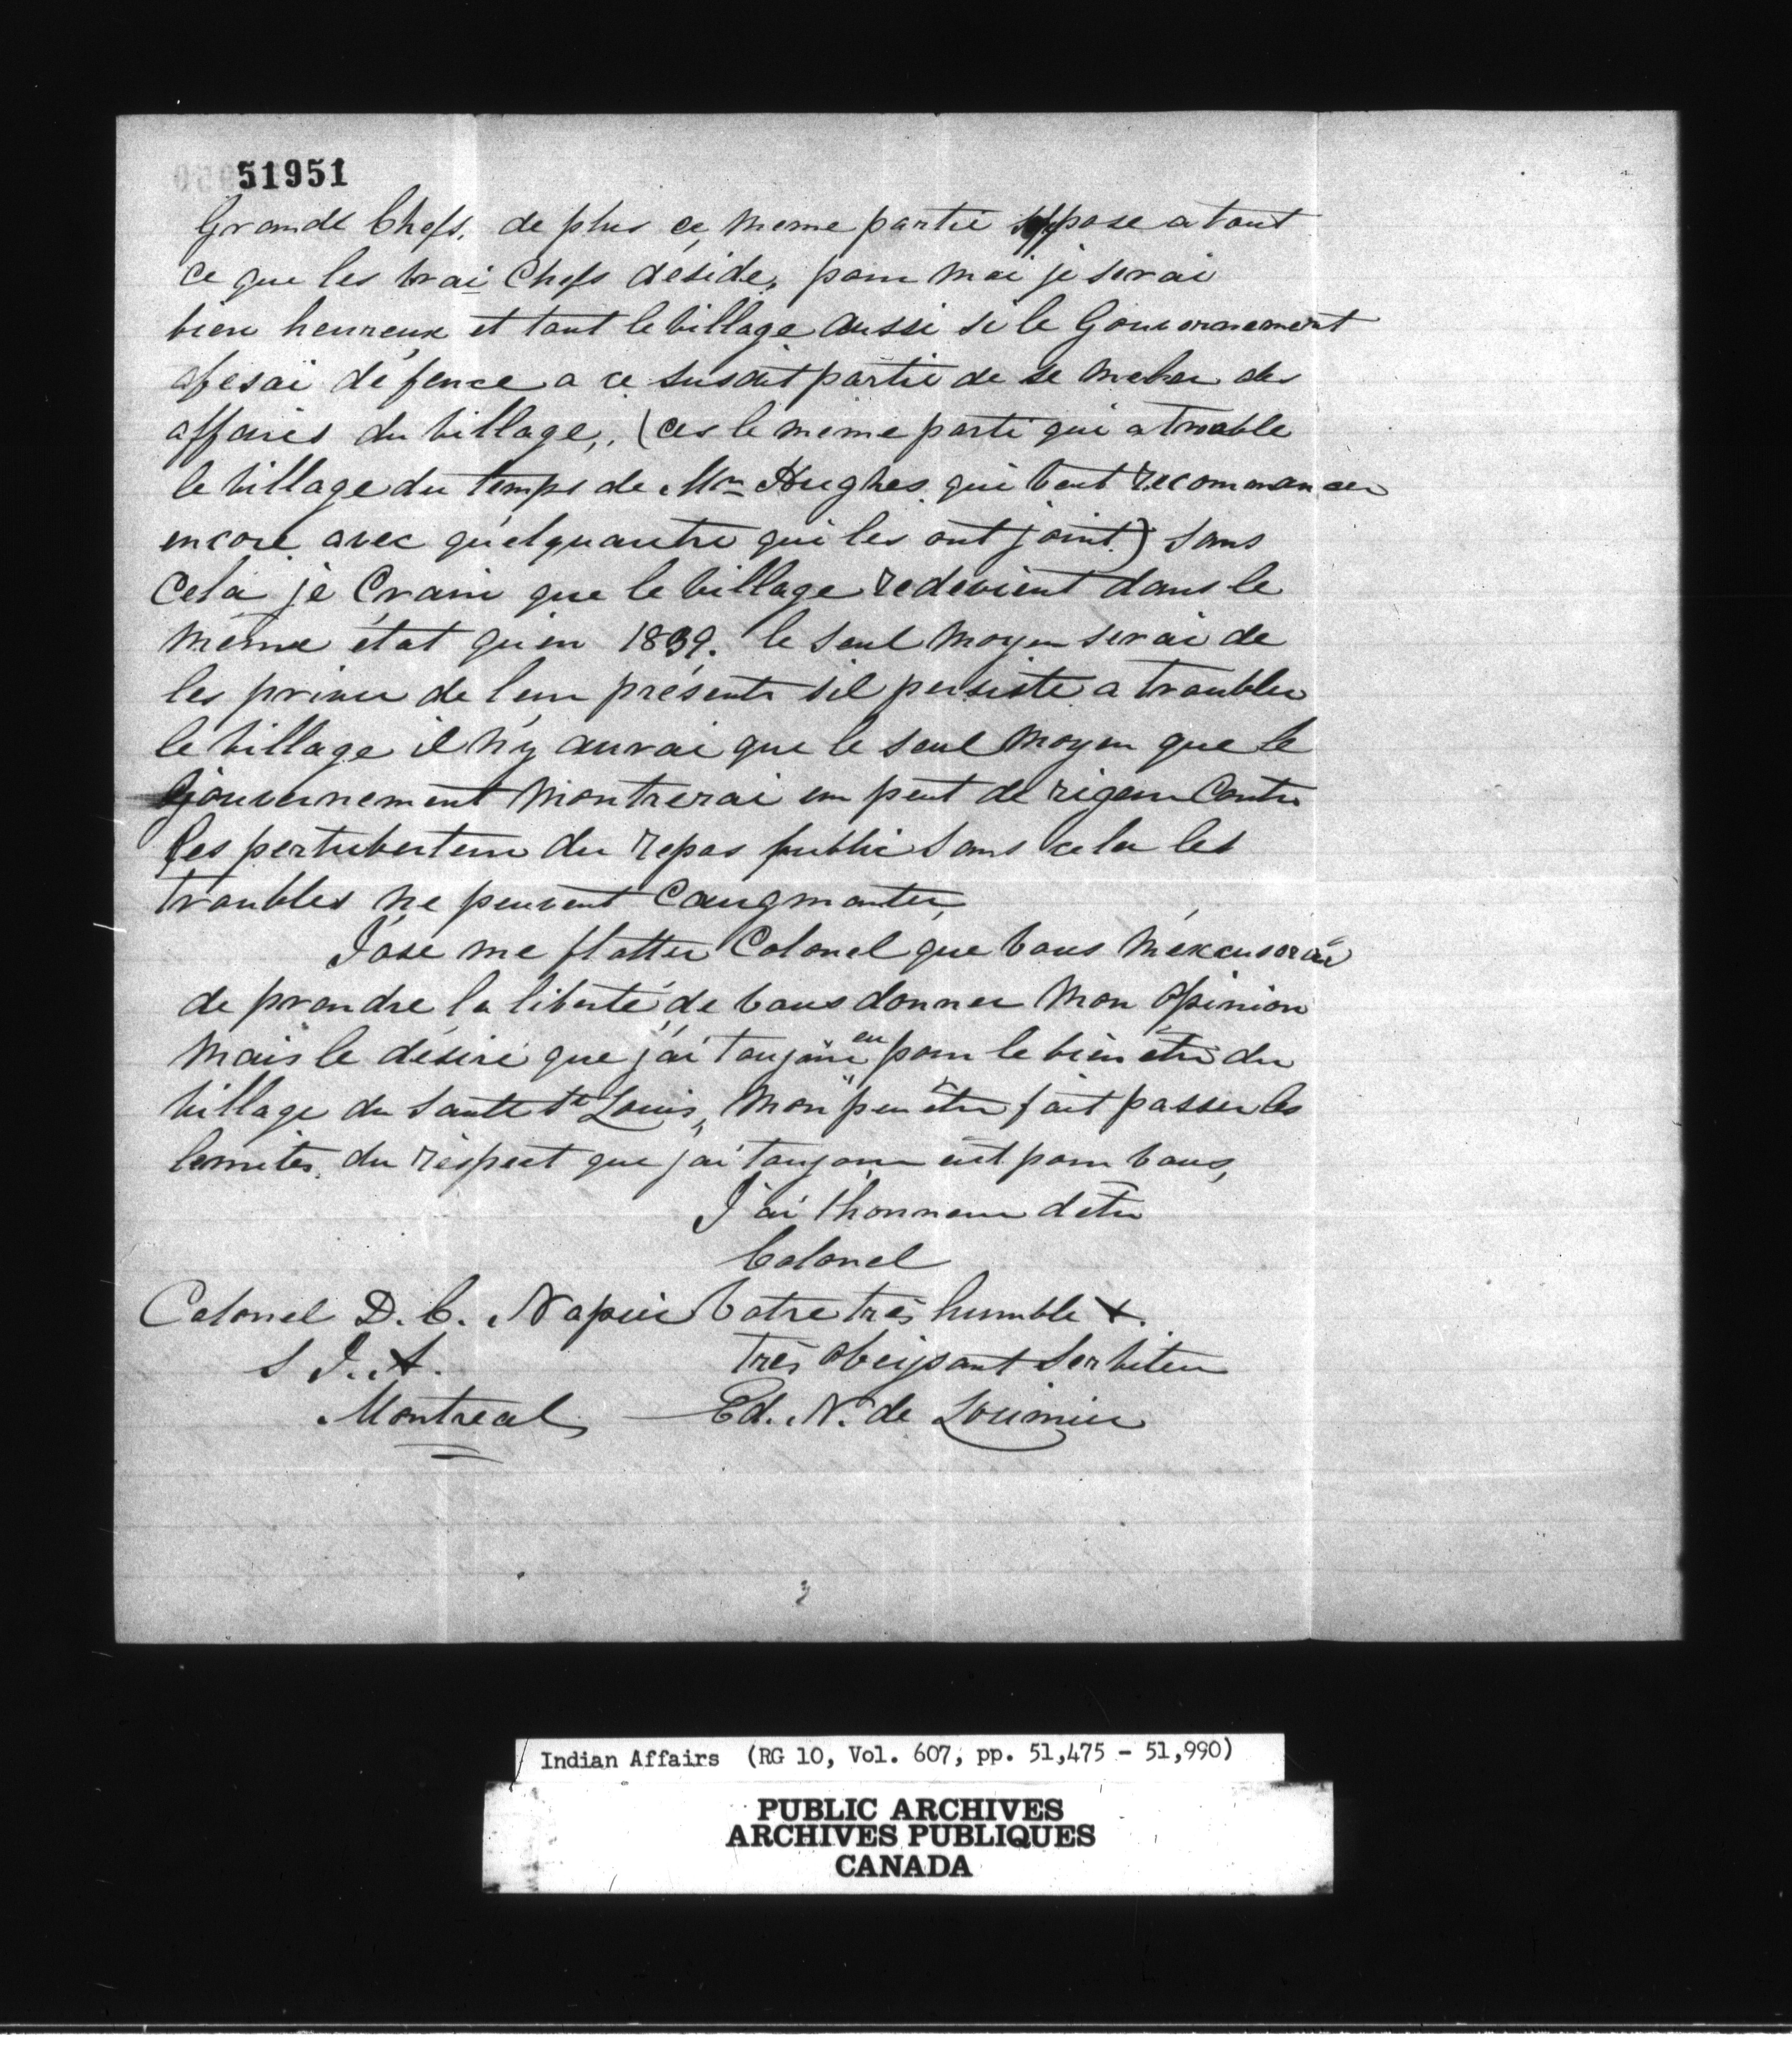 51951
Grands Chefs. de plus ce meme partie oppose a tout
ce que les vrai Chefs deside, pour moi je serai
bien heureux et tout le village aussi si le Gouvernement
afesai défence a ce susait partie de se meler des
affaires du village,, (ces le meme parti qui a trouble
le village du temps de Mr Hughes qui veut recommancer
encore avec quelquautre qui les ont joint) sans
Cela je Crain que le village redevient dans le
meme état qu'en 1839. le seul moyen serai de
les priver de leur présents sil persiste a troubler
le village il n'y aurai que le seul moyen que le
Gouvernement montrerai un peut de rigeur Contre
les pertuberteur du repos public sans cela les
troubles ne peuvent Caugmanter,
J'ose me flatter Colonel que vous m'excuserai
de prandre la liberté de vous donner mon opinion
mais le désire que j'ai toujour eu pour le bien etre du
village du Sault St Louis, mon peu etre fait passer les
lemites du respect que j'ai toujour eut pour vous,
J'ai l'honneur d'etre
Colonel
Colonel D. C. Napier Votre très humble &.
S I. A. très obeissant Serviteur
Montreal Ed. N. de Lorimier
Indian Affairs (RG 10, Vol. 607, pp. 51,475 - 51,990)
PUBLIC ARCHIVES
ARCHIVES PUBLIQUES
CANADA